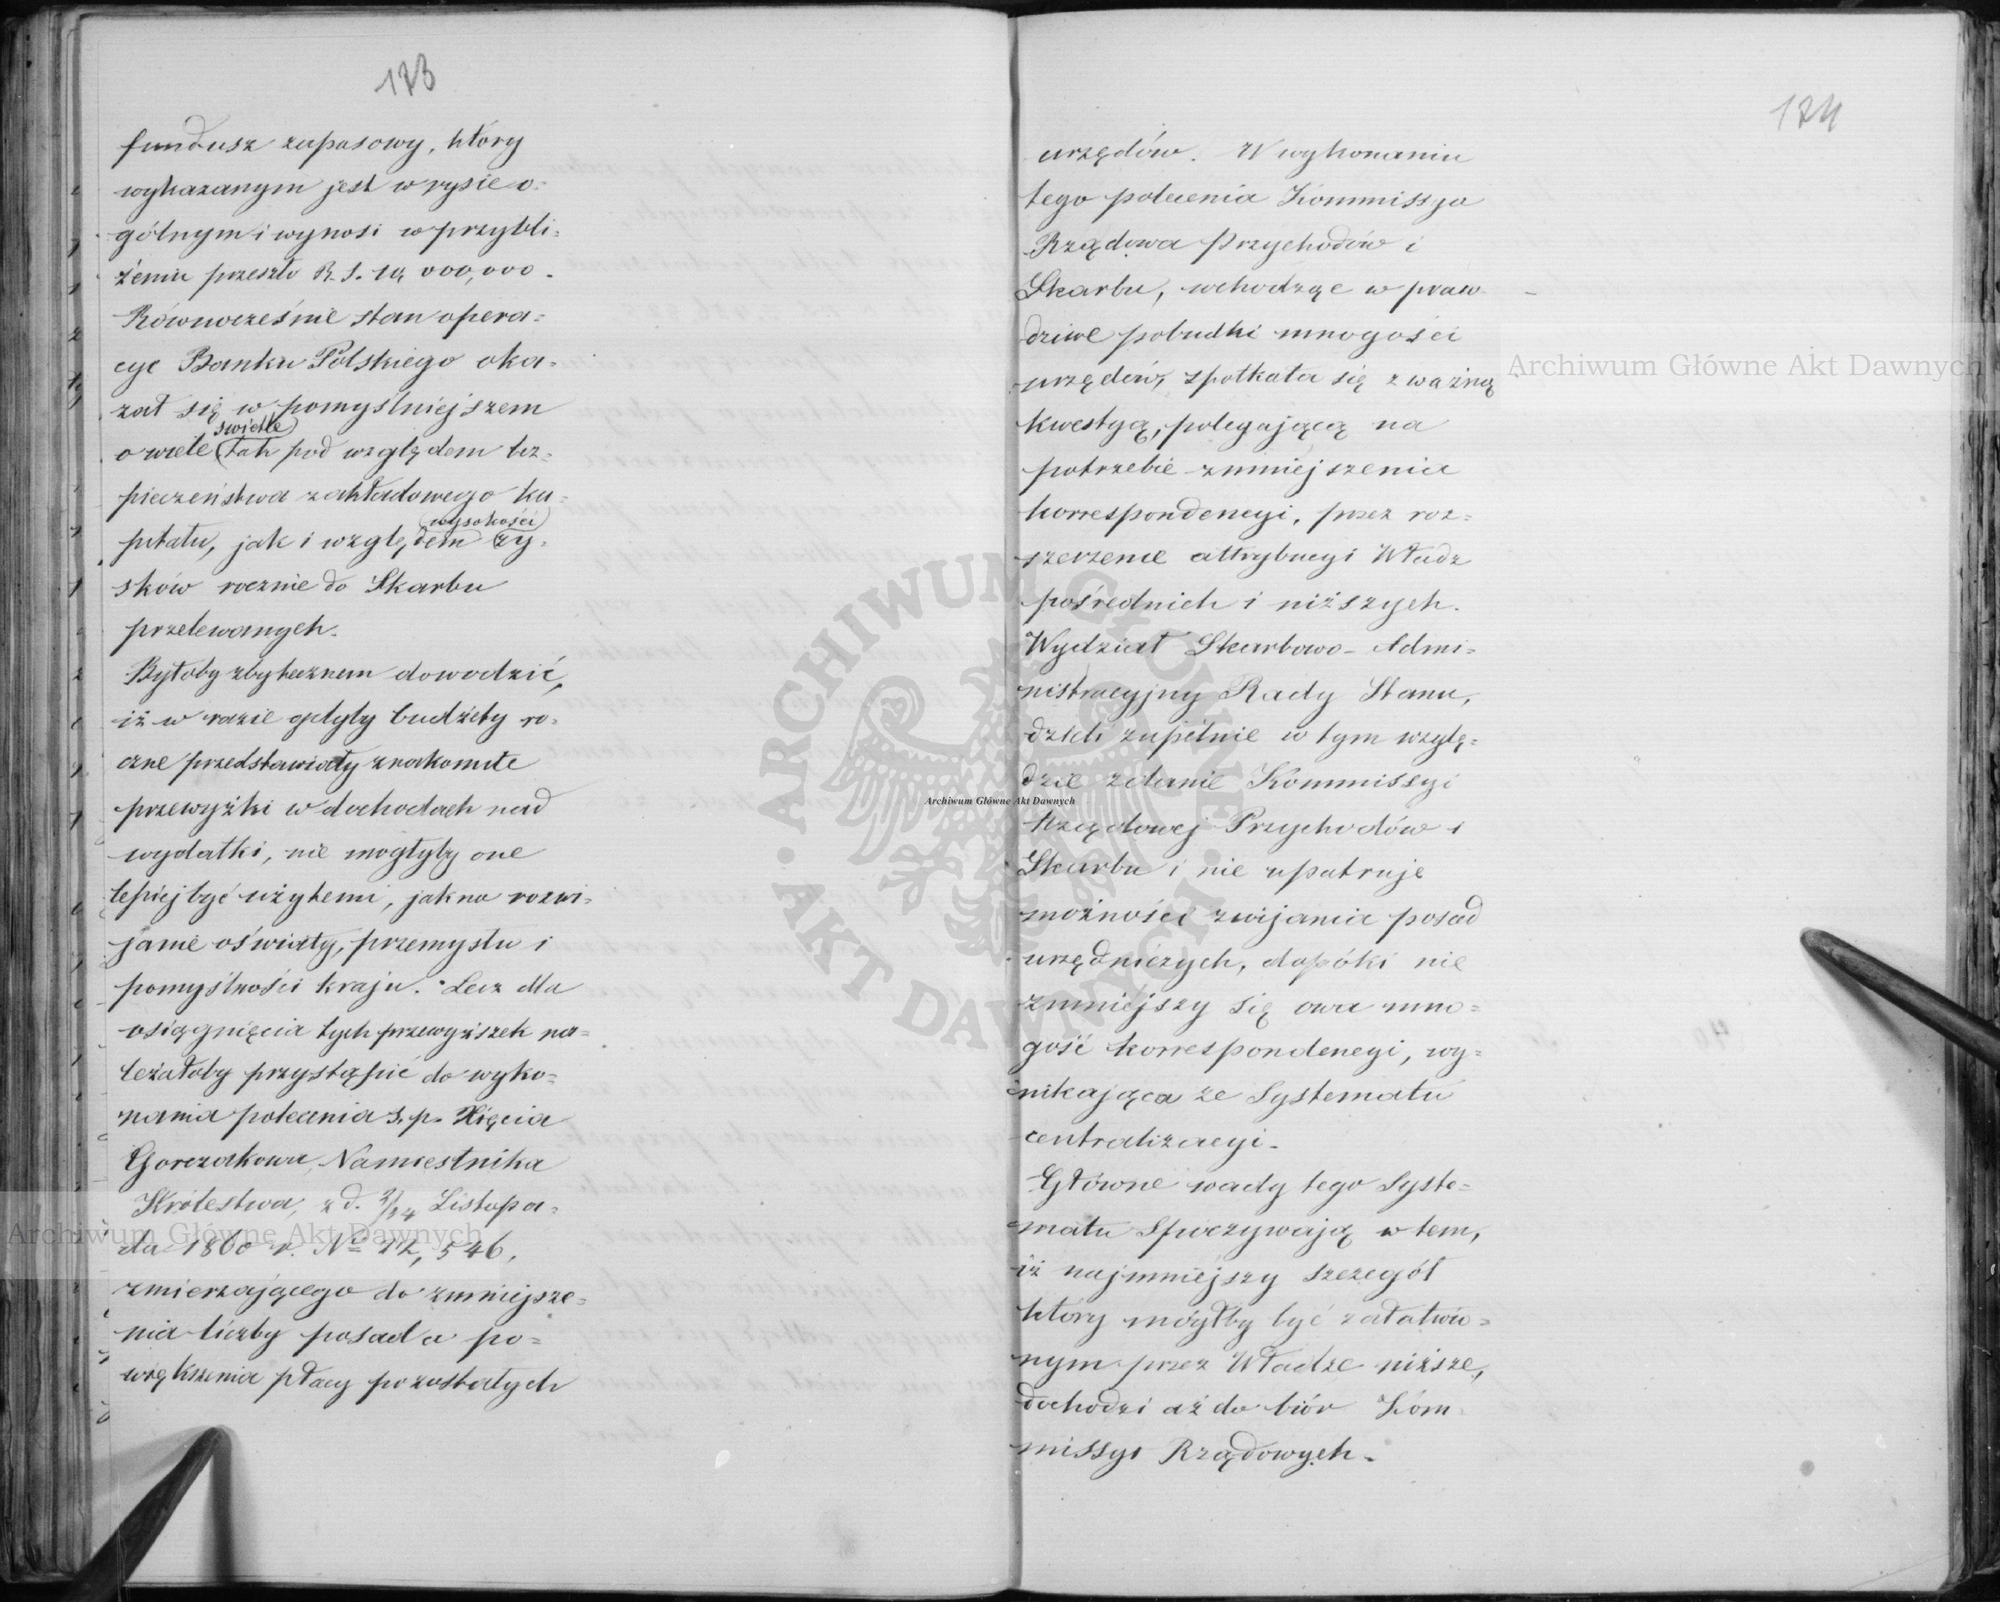 173
fundusz zapasowy, który
wykazanym jest w rysie o=
gólnym i wynosi w przybli=
żeniu przeszło R. S. 10,000,000.
Równocześnie stan opera=
cyj Banku Polskiego oka=
zał się w pomyślniejszem
świetle
o wiele tak pod względem bez=
pieczeństwa zakładowego ka=
wysokości
pitału, jak i względem zy=
sków rocznie do Skarbu
przelewanych.
Byłoby zbytecznem dowodzić,
iż w razie gdyby budżety ro=
czne przedstawiały znakomite
przewyżki w dochodach nad
wydatki, nie mogłyby one
lepiej być użytemi, jak na rozwi=
janie oświaty, przemysłu i
pomyślności kraju. Lecz dla
osiągnięcia tych przewyższek na=
leżałoby przystąpić do wyko=
nania polecenia ś. p. Xięcia
Gorczakowa, Namiestnika
Królestwa, z d. Listopa=
da 1860 r. No 22,546,
zmierzającego do zmniejsze=
nia liczby posad a po=
większenia płacy pozostałych
174
urzędów. W wykonaniu
tego polecenia Kommissya
Rządowa Przychodów i
Skarbu, wchodząc w praw
dziwe pobudki mnogości
urzędów, spotkała się z ważną
kwestyą, polegającą na
potrzebie zmniejszenia
korrespondencyi, przez roz=
szerzenie attrybucyi Władz
pośrednich i niższych.
Wydział Skarbowo-Admi=
nistracyjny Rady Stanu,
dzieli zupełnie w tym wzglę=
dzie zdanie Kommissyi
Rządowej Przychodów i
Skarbu i nie upatruje
możności zwijania posad
urzędniczych, dopóki nie
zmniejszy się owa mno=
gość korrespondencyi, wy=
nikająca ze Systematu
centralizacyi.
Główne wady tego Syste=
matu spoczywają w tem,
iż najmniejszy szczegół
który mógłby być załatwio=
nym przez Władze niższe,
dochodzi aż do biór Kom
missyi Rządowych.
Archiwum Główne Akt Dawnych
Archiwum Główne Akt Dawnych
Archiwum Główne Akt Dawnych
ARCHIWUM GŁÓWNE • AKT DAWNYCH •